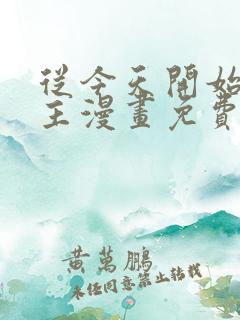 從今天開始
王漫畫免費
黃萬鵬
未经同意禁止转载